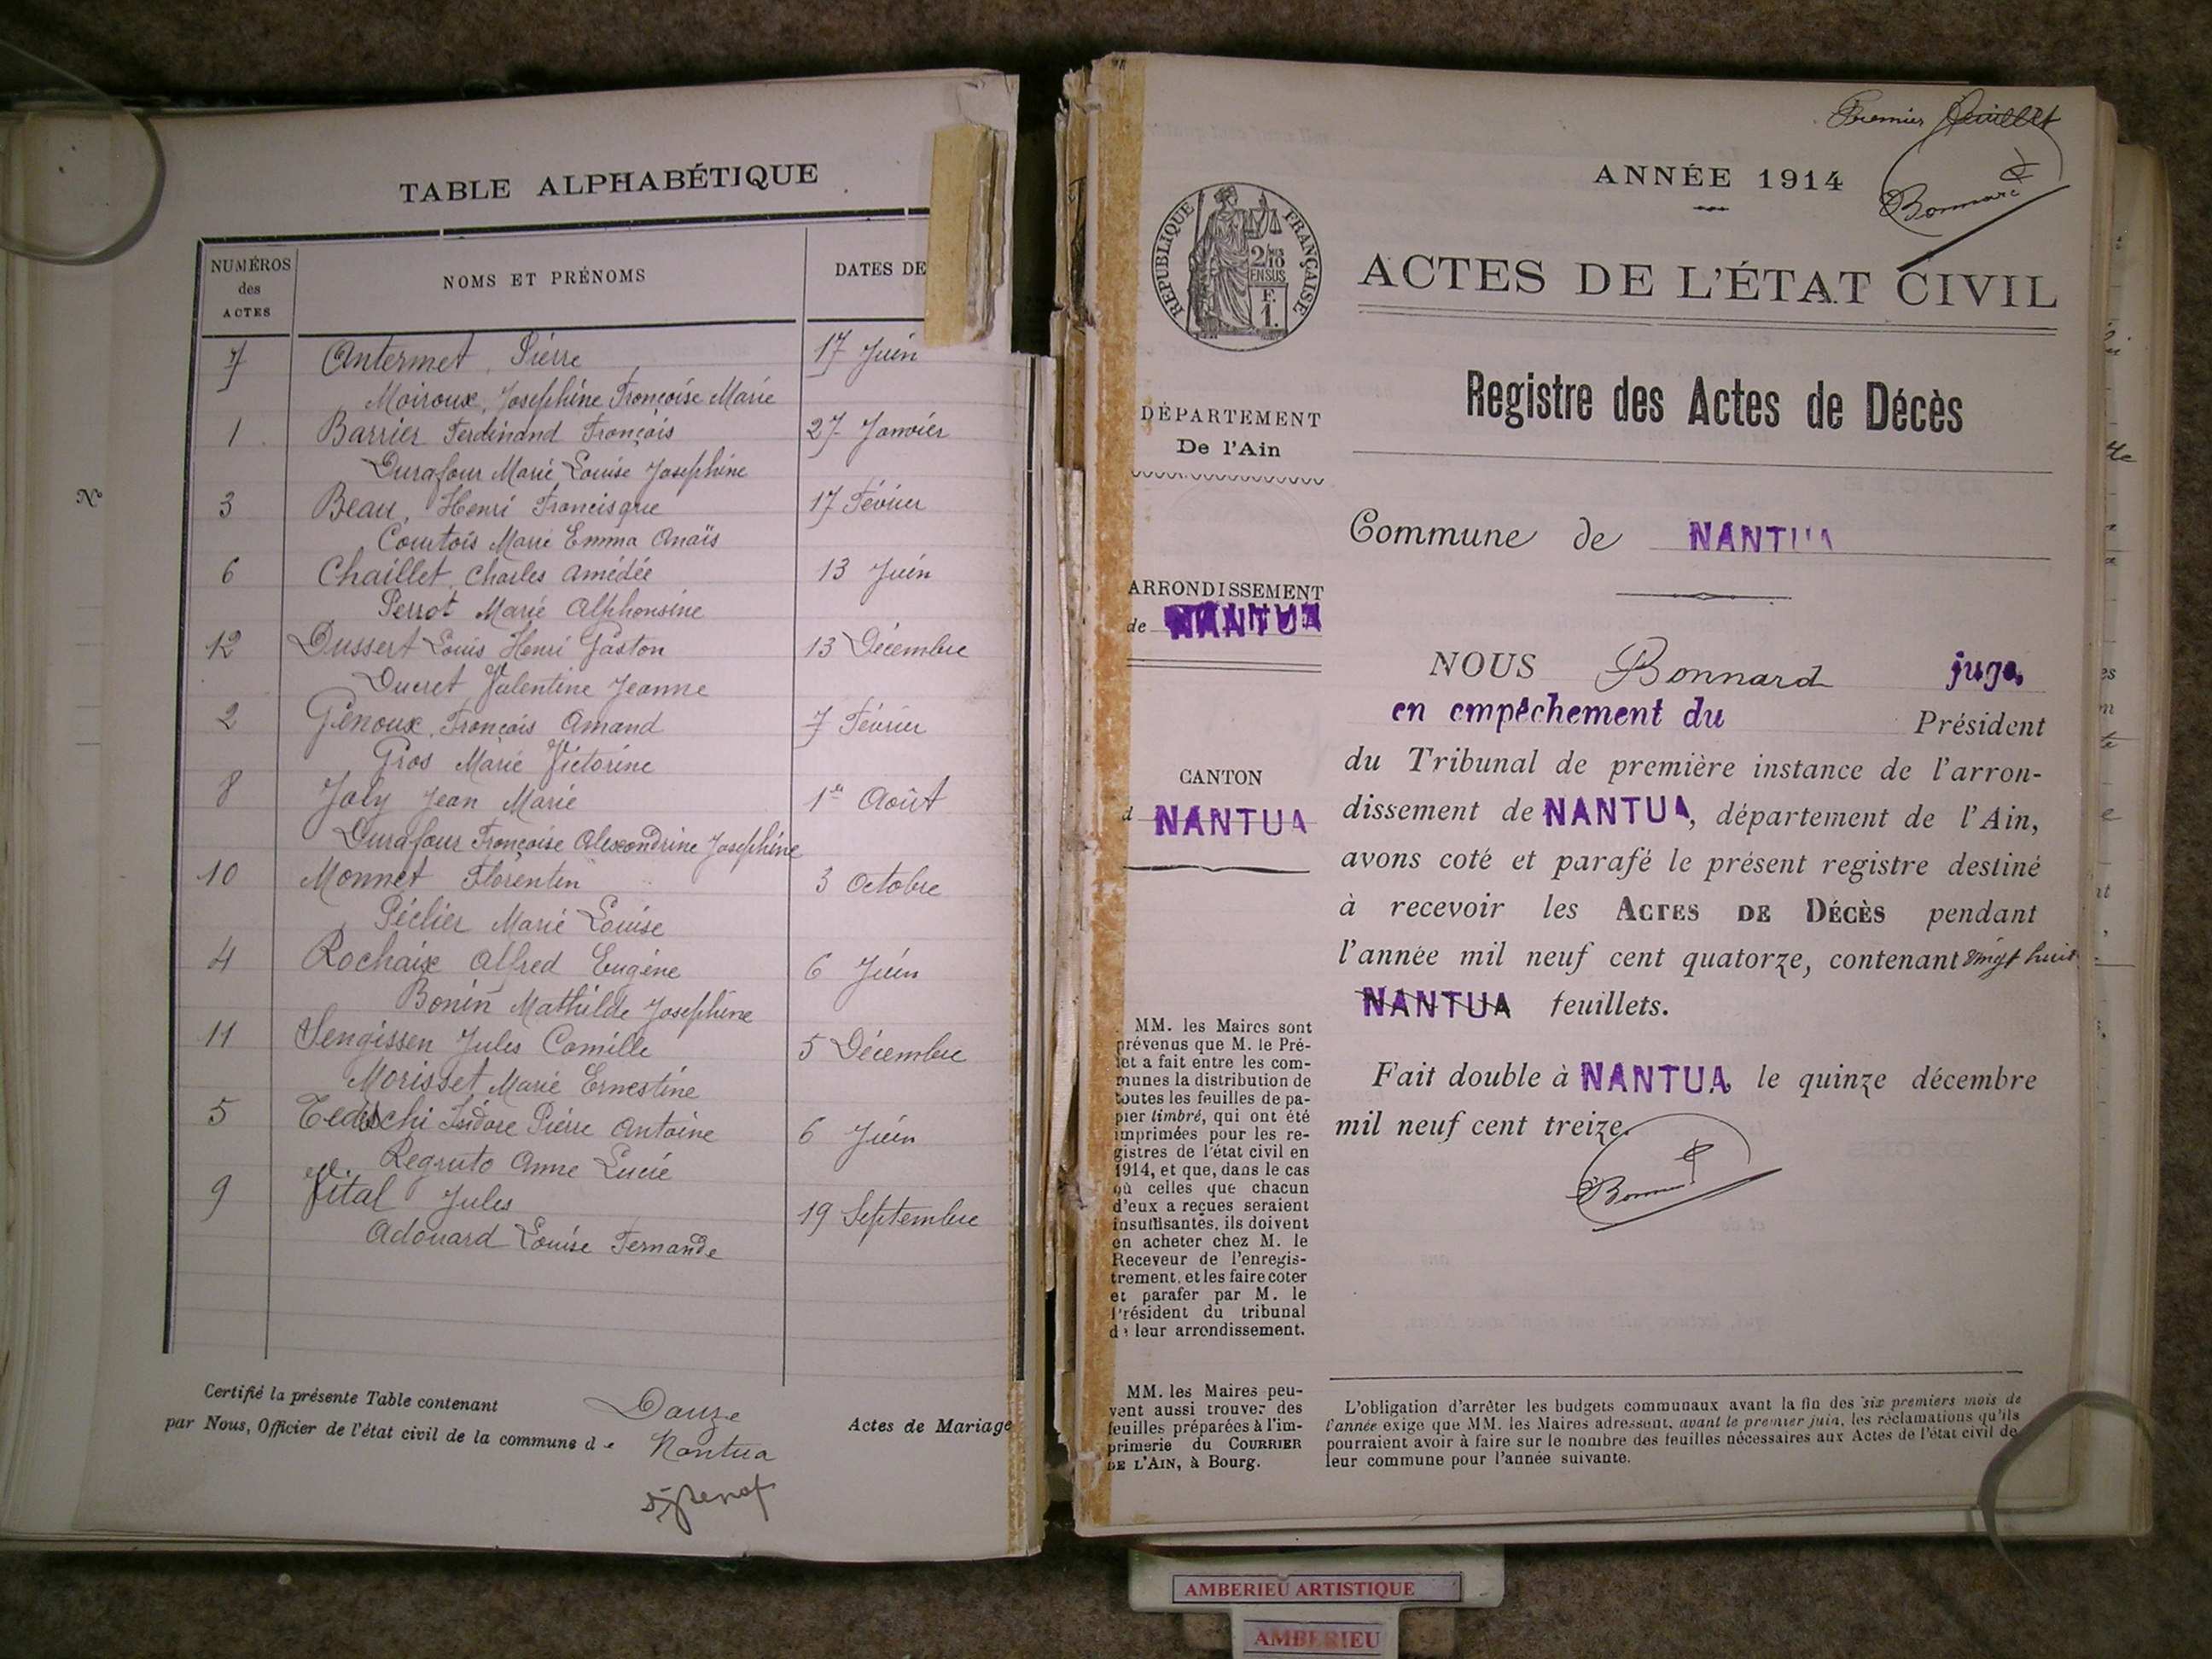 TABLE ALPHABÉTIQUE
NUMÉROS
des
ACTES
NOMS ET PRÉNOMS
DATES DE
7 Antermet, Pierre 17 Juin
Moiroux, Josephine Françoise Marie
1 Barrier Ferdinand François 27 Janvier
Durafour Marie Louise Josephine
3 Beau, Henri Francisque 17 Février
Courtois Marie Emma Anaïs
6 Chaillet, Charles Amédée 13 Juin
Perrot Marie Alphonsine
12 Dussert Louis Henri Gaston 13 Décembre
Ducret Valentine Jeanne
2 Genoux, François Amand 7 Février
Gros Marie Victorine
8 Joly Jean Marie 1er Août
Durafour Françoise Alexandrine Josephine
10 Monnet Florentin 3 Octobre
Péclier Marie Louise
4 Rochaix Alfred Eugène 6 Juin
Bonin Mathilde Josephine
11 Sengissen Jules Camille 5 Décembre
Morisset Marie Ernestine
5 Tedeschi Isidore Pierre Antoine 6 Juin
Regruto Anne Lucie
9 Vital Jules 19 Septembre
Adouard Louise Fernande
Certifié la présente Table contenant Douze Actes de Mariage
par Nous, Officier de l'état civil de la commune de Nantua
N°
Premier feuillet
Bonnard
ANNÉE 1914
RÉPUBLIQUE FRANÇAISE
2/10
EN SUS
F.
1.
ACTES DE L'ÉTAT CIVIL
Registre des Actes de Décès
DÉPARTEMENT
De l'Ain
Commune de NANTUA
ARRONDISSEMENT
de NANTUA
CANTON
d NANTUA
NOUS Bonnard juge,
en empêchement du Président
du Tribunal de première instance de l'arron-
dissement de NANTUA, département de l'Ain,
avons coté et parafé le présent registre destiné
à recevoir les ACTES DE DÉCÈS pendant
l'année mil neuf cent quatorze, contenant vingt huit
NANTUA feuillets.
Fait double à NANTUA le quinze décembre
mil neuf cent treize.
MM. les Maires sont
prévenus que M. le Pré-
fet a fait entre les com-
munes la distribution de
toutes les feuilles de pa-
pier timbré, qui ont été
imprimées pour les re-
gistres de l'état civil en
1914, et que, dans le cas
où celles que chacun
d'eux a reçues seraient
insuffisantes, ils doivent
en acheter chez M. le
Receveur de l'enregis-
trement, et les faire coter
et parafer par M. le
Président du tribunal
de leur arrondissement.
MM. les Maires peu-
vent aussi trouver des
feuilles préparées à l'im-
primerie du COURRIER
DE L'AIN, à Bourg.
L'obligation d'arrêter les budgets communaux avant la fin des six premiers mois de
l'année exige que MM. les Maires adressent, avant le premier juin, les réclamations qu'ils
pourraient avoir à faire sur le nombre des feuilles nécessaires aux Actes de l'état civil de
leur commune pour l'année suivante.
AMBERIEU ARTISTIQUE
AMBERIEU